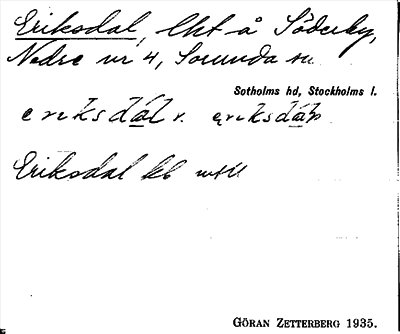 Eriksdal, lht å Söderby,
Nedre nr 4, Sorunda sn
Sotholms hd, Stockholms l.
Eriksdal kb
GÖRAN ZETTERBERG 1935.